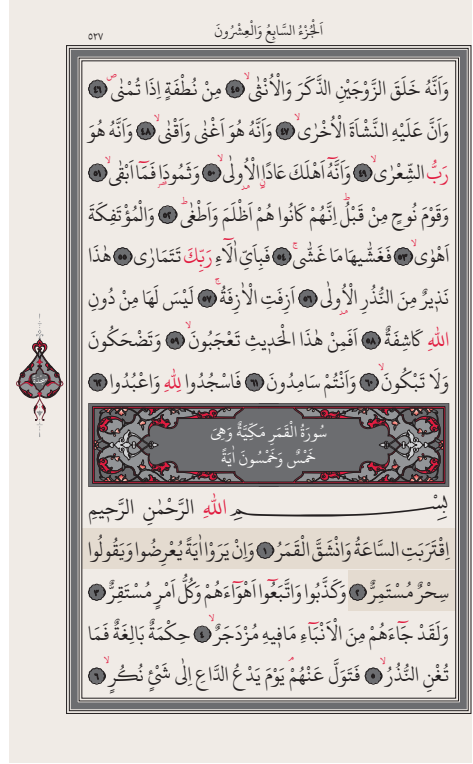 اَلْجُزْءُ السَّابِعُ وَالْعِشْرُونَ
٥٢٧
وَاَنَّهُ خَلَقَ الزَّوْجَيْنِ الذَّكَرَ وَالْاُنْثٰىۙ ٤٥ مِنْ نُطْفَةٍ اِذَا تُمْنٰىۖ ٤٦
وَاَنَّ عَلَيْهِ النَّشْاَةَ الْاُخْرٰىۙ ٤٧ وَاَنَّهُ هُوَ اَغْنٰى وَاَقْنٰىۙ ٤٨ وَاَنَّهُ هُوَ
رَبُّ الشِّعْرٰىۙ ٤٩ وَاَنَّهُٓ اَهْلَكَ عَادًاۨ الْاُو۫لٰىۙ ٥٠ وَثَمُودَا۬ فَمَٓا اَبْقٰىۙ ٥١
وَقَوْمَ نُوحٍ مِنْ قَبْلُۜ اِنَّهُمْ كَانُوا هُمْ اَظْلَمَ وَاَطْغٰىۜ ٥٢ وَالْمُؤْتَفِكَةَ
اَهْوٰىۙ ٥٣ فَغَشّٰيهَا مَا غَشّٰىۚ ٥٤ فَبِاَيِّ اٰلَٓاءِ رَبِّكَ تَتَمَارٰى ٥٥ هٰذَا
نَذ۪يرٌ مِنَ النُّذُرِ الْاُو۫لٰى ٥٦ اَزِفَتِ الْاٰزِفَةُۚ ٥٧ لَيْسَ لَهَا مِنْ دُونِ
اللّٰهِ كَاشِفَةٌۜ ٥٨ اَفَمِنْ هٰذَا الْحَد۪يثِ تَعْجَبُونَۙ ٥٩ وَتَضْحَكُونَ
وَلَا تَبْكُونَۙ ٦٠ وَاَنْتُمْ سَامِدُونَ ٦١ فَاسْجُدُوا لِلّٰهِ وَاعْبُدُوا ٦٢
سُورَةُ الْقَمَرِ مَكِّيَّةٌ وَهِيَ
خَمْسٌ وَخَمْسُونَ اٰيَةً
بِسْمِ اللّٰهِ الرَّحْمٰنِ الرَّح۪يمِ
اِقْتَرَبَتِ السَّاعَةُ وَانْشَقَّ الْقَمَرُ ١ وَاِنْ يَرَوْا اٰيَةً يُعْرِضُوا وَيَقُولُوا
سِحْرٌ مُسْتَمِرٌّ ٢ وَكَذَّبُوا وَاتَّبَعُٓوا اَهْوَٓاءَهُمْ وَكُلُّ اَمْرٍ مُسْتَقِرٌّ ٣
وَلَقَدْ جَٓاءَهُمْ مِنَ الْاَنْبَٓاءِ مَا ف۪يهِ مُزْدَجَرٌۙ ٤ حِكْمَةٌ بَالِغَةٌ فَمَا
تُغْنِ النُّذُرُۙ ٥ فَتَوَلَّ عَنْهُمْۢ يَوْمَ يَدْعُ الدَّاعِ اِلٰى شَيْءٍ نُكُرٍۙ ٦